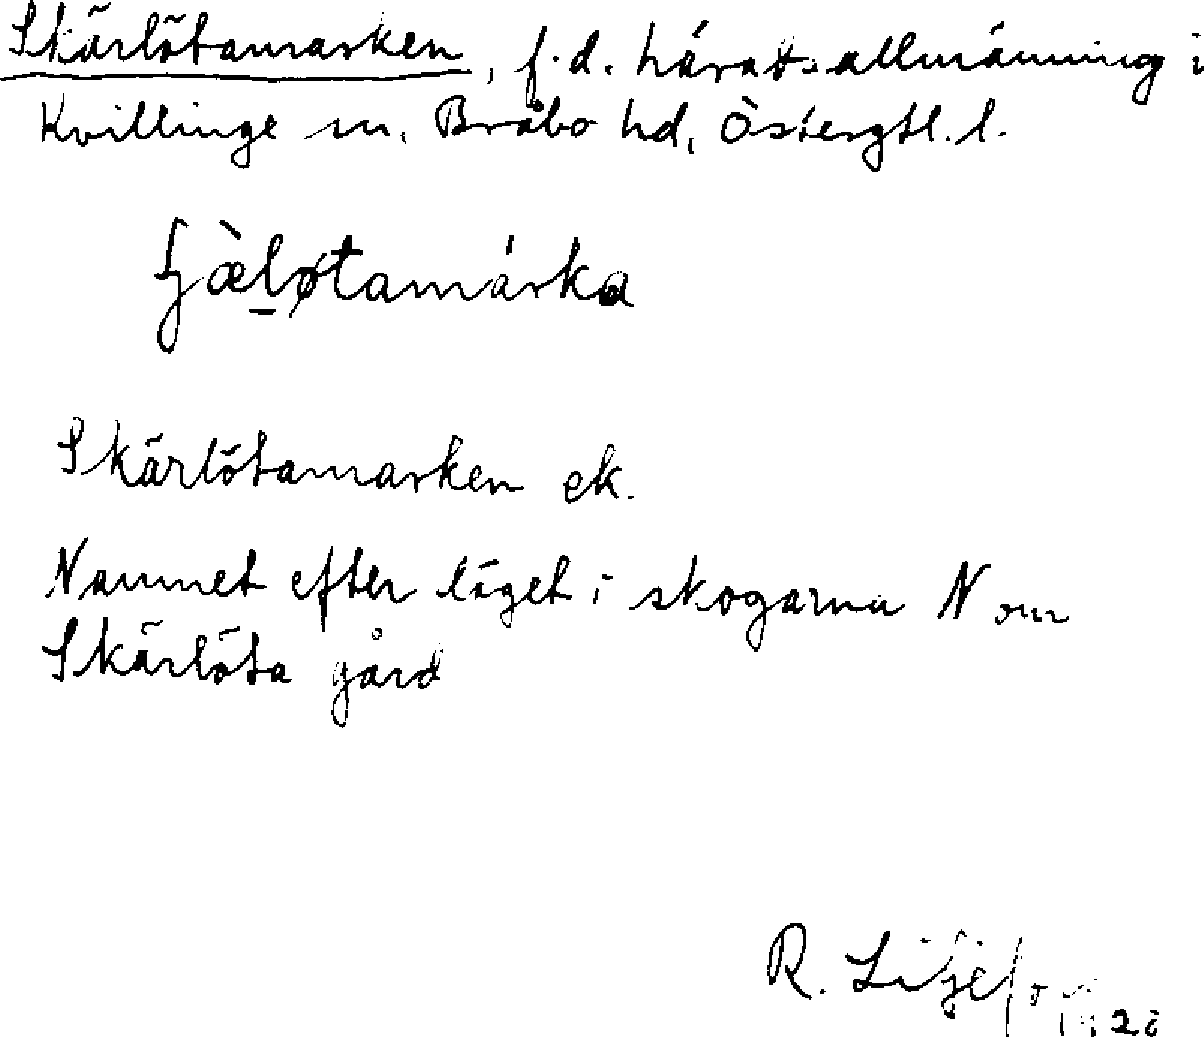 Skärlötamarken, f.d. häradsallmänning i
Kvillinge sn, Bråbo hd, Östergtl. l.
Skärlötamarken ek.
Namnet efter läget i skogarna N om
Skärlöta gård
R. Liljefo